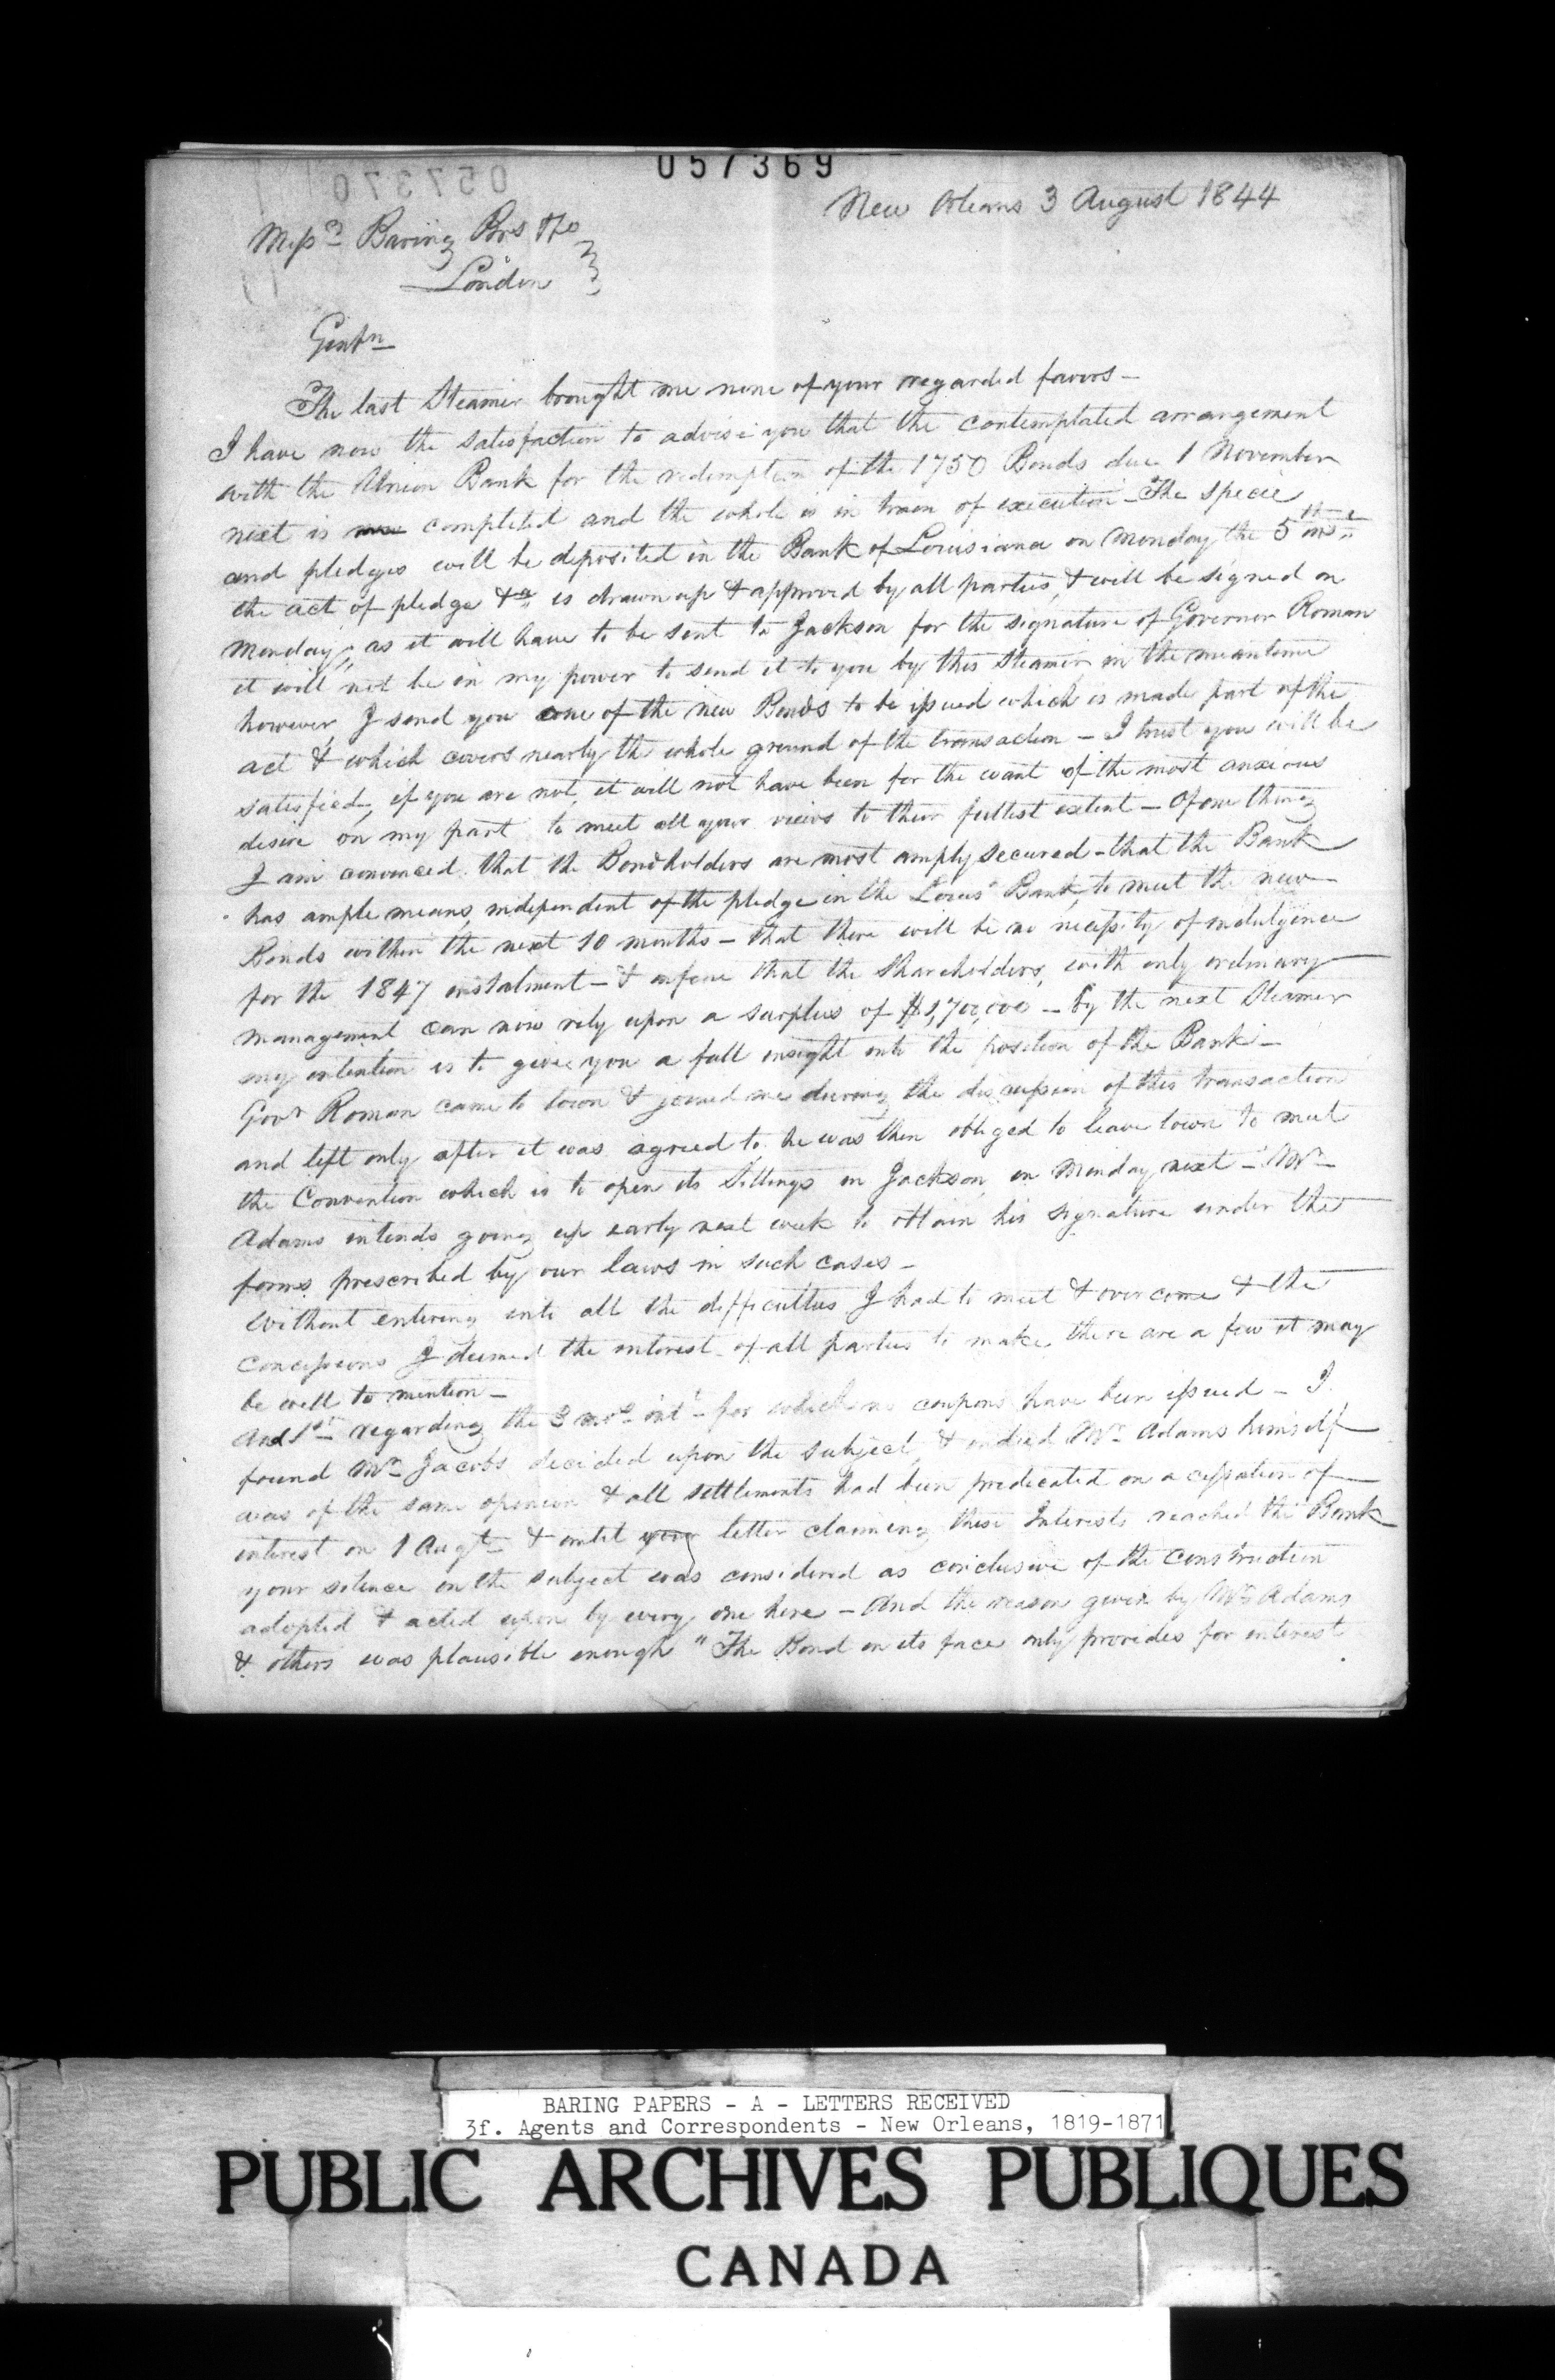 057369
057370
New Orleans 3 August 1844
Mess rs Baring Bros & Co
London
Gentn
The last Steamer brought me none of your regarded favors –
I have now the satisfaction to advise you that the contemplated arrangement
with the Union Bank for the redemption of the 1750 Bonds due 1 November
next is completed and the whole is in train of execution – The specie
and pledges will be deposited in the Bank of Louisiana on Monday the 5th inst
the act of pledge &a is drawn up & approved by all parties, & will be signed on
Monday; as it will have to be sent to Jackson for the signature of Governor Roman
it will not be in my power to send it to you by this Steamer, in the meantime
however, I send you one of the new Bonds to be issued which is made part of the
act & which covers nearly the whole ground of the transaction – I trust you will be
satisfied, if you are not, it will not have been for the want of the most anxious
desire on my part to meet all your views to their fullest extent – Of one thing
I am convinced that the Bondholders are most amply secured – that the Bank
has ample means, independent of the pledge in the Louis a Bank, to meet the new
Bonds within the next 10 months – that there will be no necessity of indulgence
for the 1847 instalment – & in fine that the Shareholders, with only ordinary
management can now rely upon a surplus of $1,700,000 – by the next Steamer
my intention is to give you a full insight into the position of the Bank –
Govr Roman came to town & joined me during the discussion of this transaction
and left only after it was agreed to, he was then obliged to leave town to meet
the Convention which is to open its Sittings in Jackson, on Monday next – Mr
Adams intends going up early next week to obtain his signature under the
forms prescribed by our laws in such cases –
Without entering into all the difficulties I had to meet & overcome & the
concessions I deemed the interest of all parties to make, there are a few it may
be well to mention –
And 1st regarding the 3 mos int t for which no coupons have been issued – I
found Mr Jacobs decided upon the subject, & indeed Mr Adams himself
was of the same opinion & all settlements had been predicated on a cessation of
interest on 1 Augt & until your letter claiming these Interests reached the Bank
your silence on the subject was considered as conclusive of the construction
adopted & acted upon by every one here – And the reason given by Mr Adams
& others was plausible enough "The Bond on its face only provides for interest
BARING PAPERS - A - LETTERS RECEIVED
3f. Agents and Correspondents - New Orleans, 1819-1871
PUBLIC ARCHIVES PUBLIQUES
CANADA